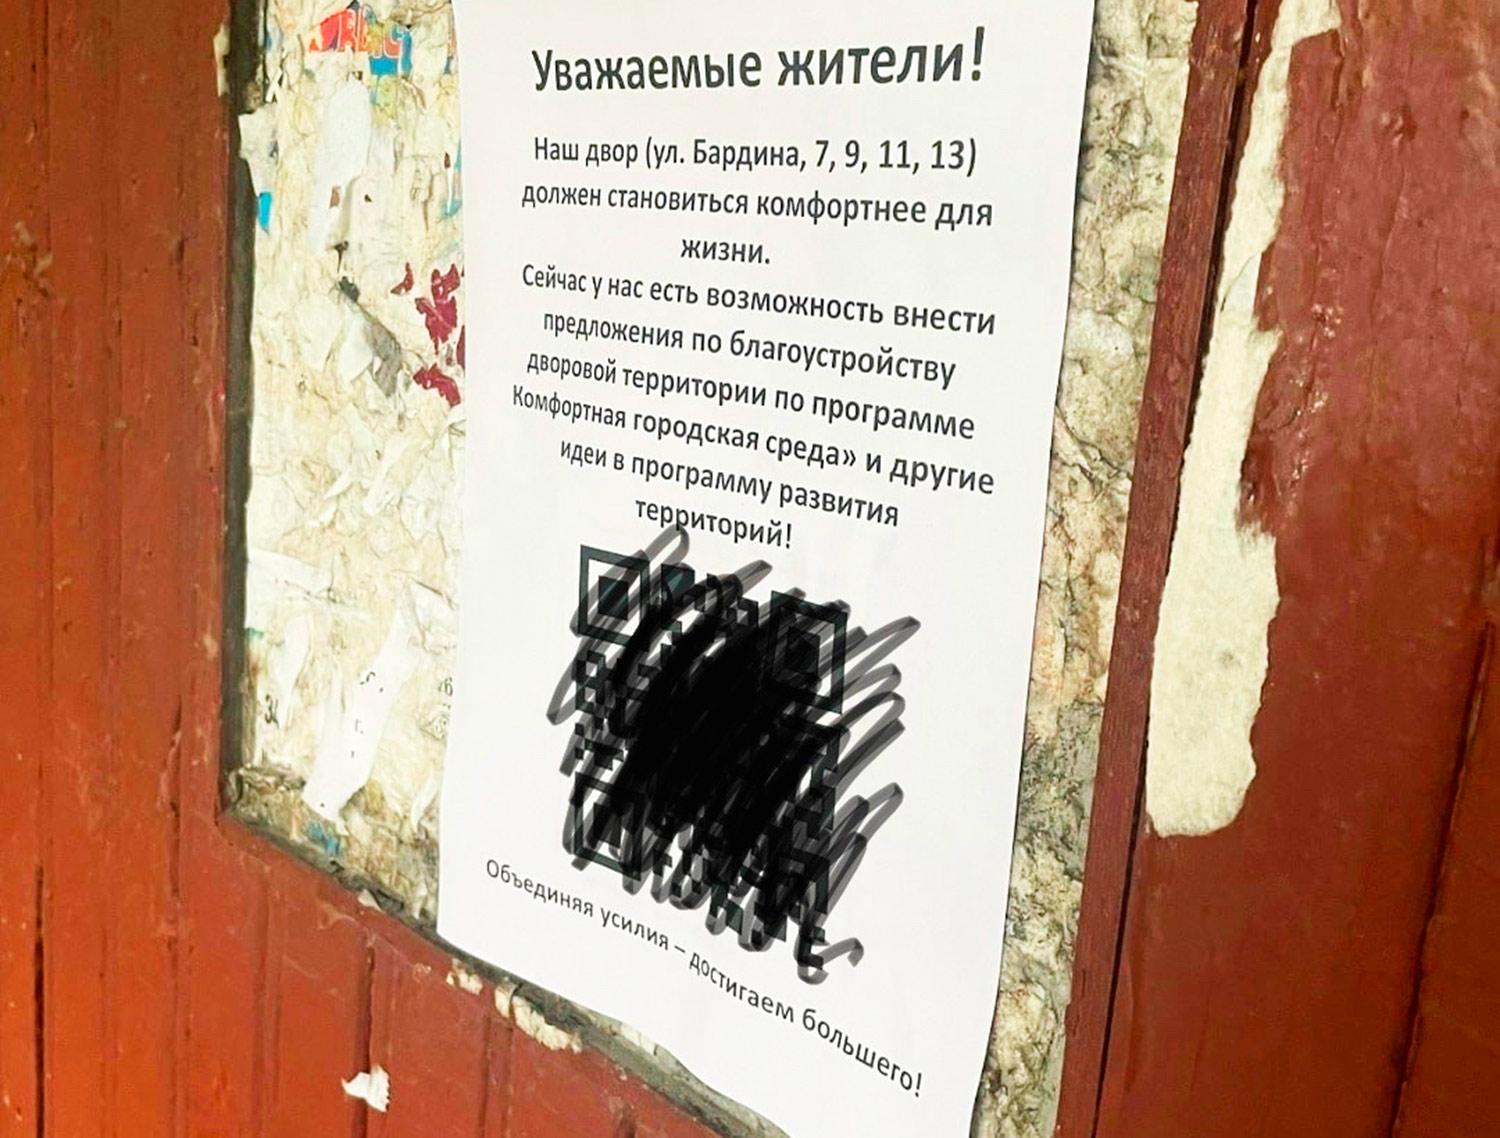 Уважаемые жители!
Наш двор (ул. Бардина, 7, 9, 11, 13)
должен становиться комфортнее для
жизни.
Сейчас у нас есть возможность внести
предложения по благоустройству
дворовой территории по программе
Комфортная городская среда» и другие
идеи в программу развития
территорий!
Объединяя усилия – достигаем большего!